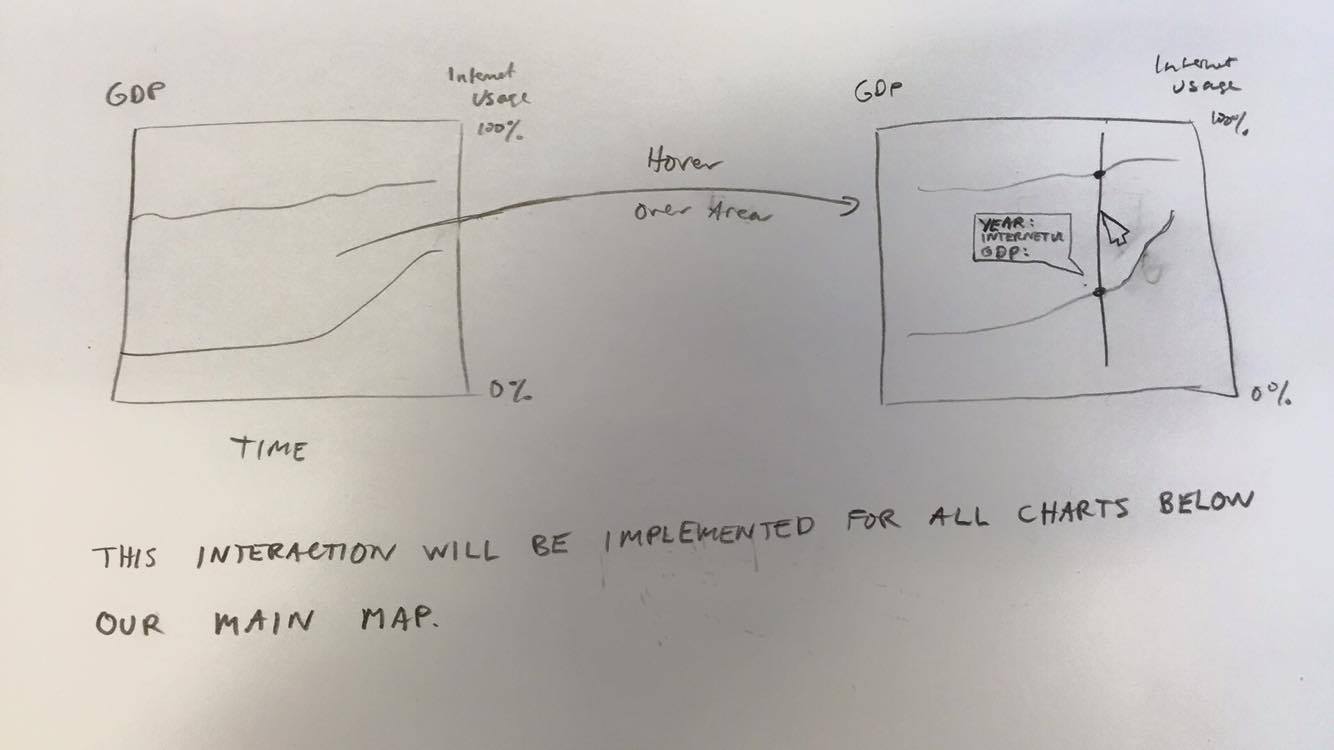 GDP
Internet
Usage
100%
0%
TIME
Hover
Over Area
GDP
Internet
Usage
100%
YEAR:
INTERNETU
GDP:
0%
THIS INTERACTION WILL BE IMPLEMENTED FOR ALL CHARTS BELOW
OUR MAIN MAP.